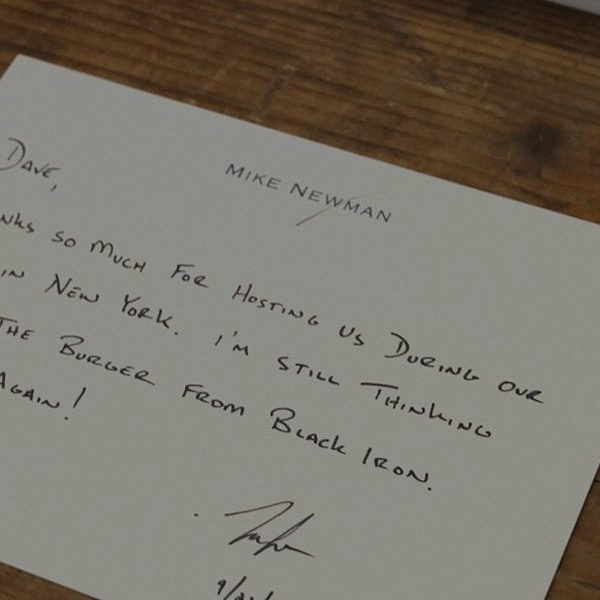 MIKE NEWMAN
DAVE,
SO MUCH FOR HOSTING US DURING OUR
IN NEW YORK. I'M STILL THINKING
THE BURGER FROM BLACK IRON.
AGAIN!